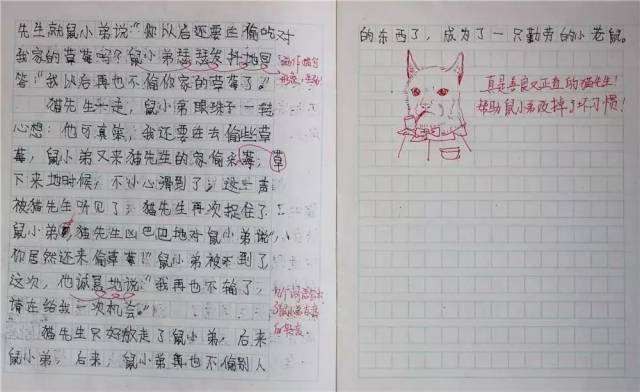 先生就鼠小弟说:“你以后还要在偷吃对
我家的草莓吗?鼠小弟瑟瑟发抖地回
答:“我以后再也不偷你家的草莓了。”
猫先生一走,鼠小弟眼珠子一转
心想:他可真笨,我还要在去偷些草
莓,鼠小弟又来猫先生的家偷采莓,草
下来地时候,不小心滑到了,这一声
被猫先生听见了,猫先生再次捉住了
鼠小弟,猫先生凶巴巴地对鼠小弟说“
你居然还来偷草莓!”鼠小弟被不到了
这次,他诚恳地说:“我再也不输了,
请在给我一次机会。”
猫先生只好放走了鼠小弟,后来
鼠小弟,后来,鼠小弟再也不偷别人
的东西了,成为了一只勤劳的小老鼠。
真是善良又正直的猫先生!
帮助鼠小弟改掉了坏习惯!